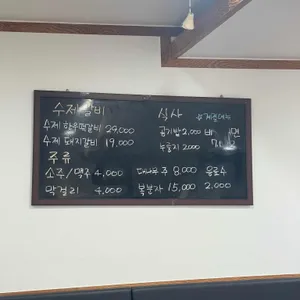 수제갈비
수제 한우떡갈비 29,000
수제 돼지갈비 19,000
주류
소주/맥주 4,000
막걸리 4,000
식사
공기밥 2,000
누룽지 2,000
대나무주 8,000 음료수
복분자 15,000 2,000